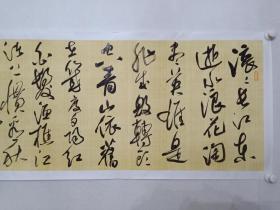 滚滚长江东
逝水浪花淘
尽英雄是
非成败转头
空青山依旧
在几度夕阳红
白发渔樵江
渚上惯看秋